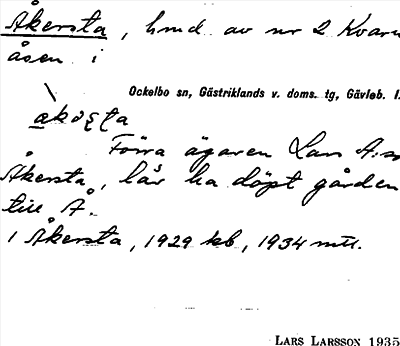 Åkersta, hmd av nr 2 Kvarn
åsen i
Ockelbo sn, Gästriklands v. doms. tg, Gävleb. l.
Förra ägaren Lars A:m
Åkersta, lär ha döpt gården
till Å.
1 Åkersta, 1929 kb, 1934 mtl.
LARS LARSSON 1935